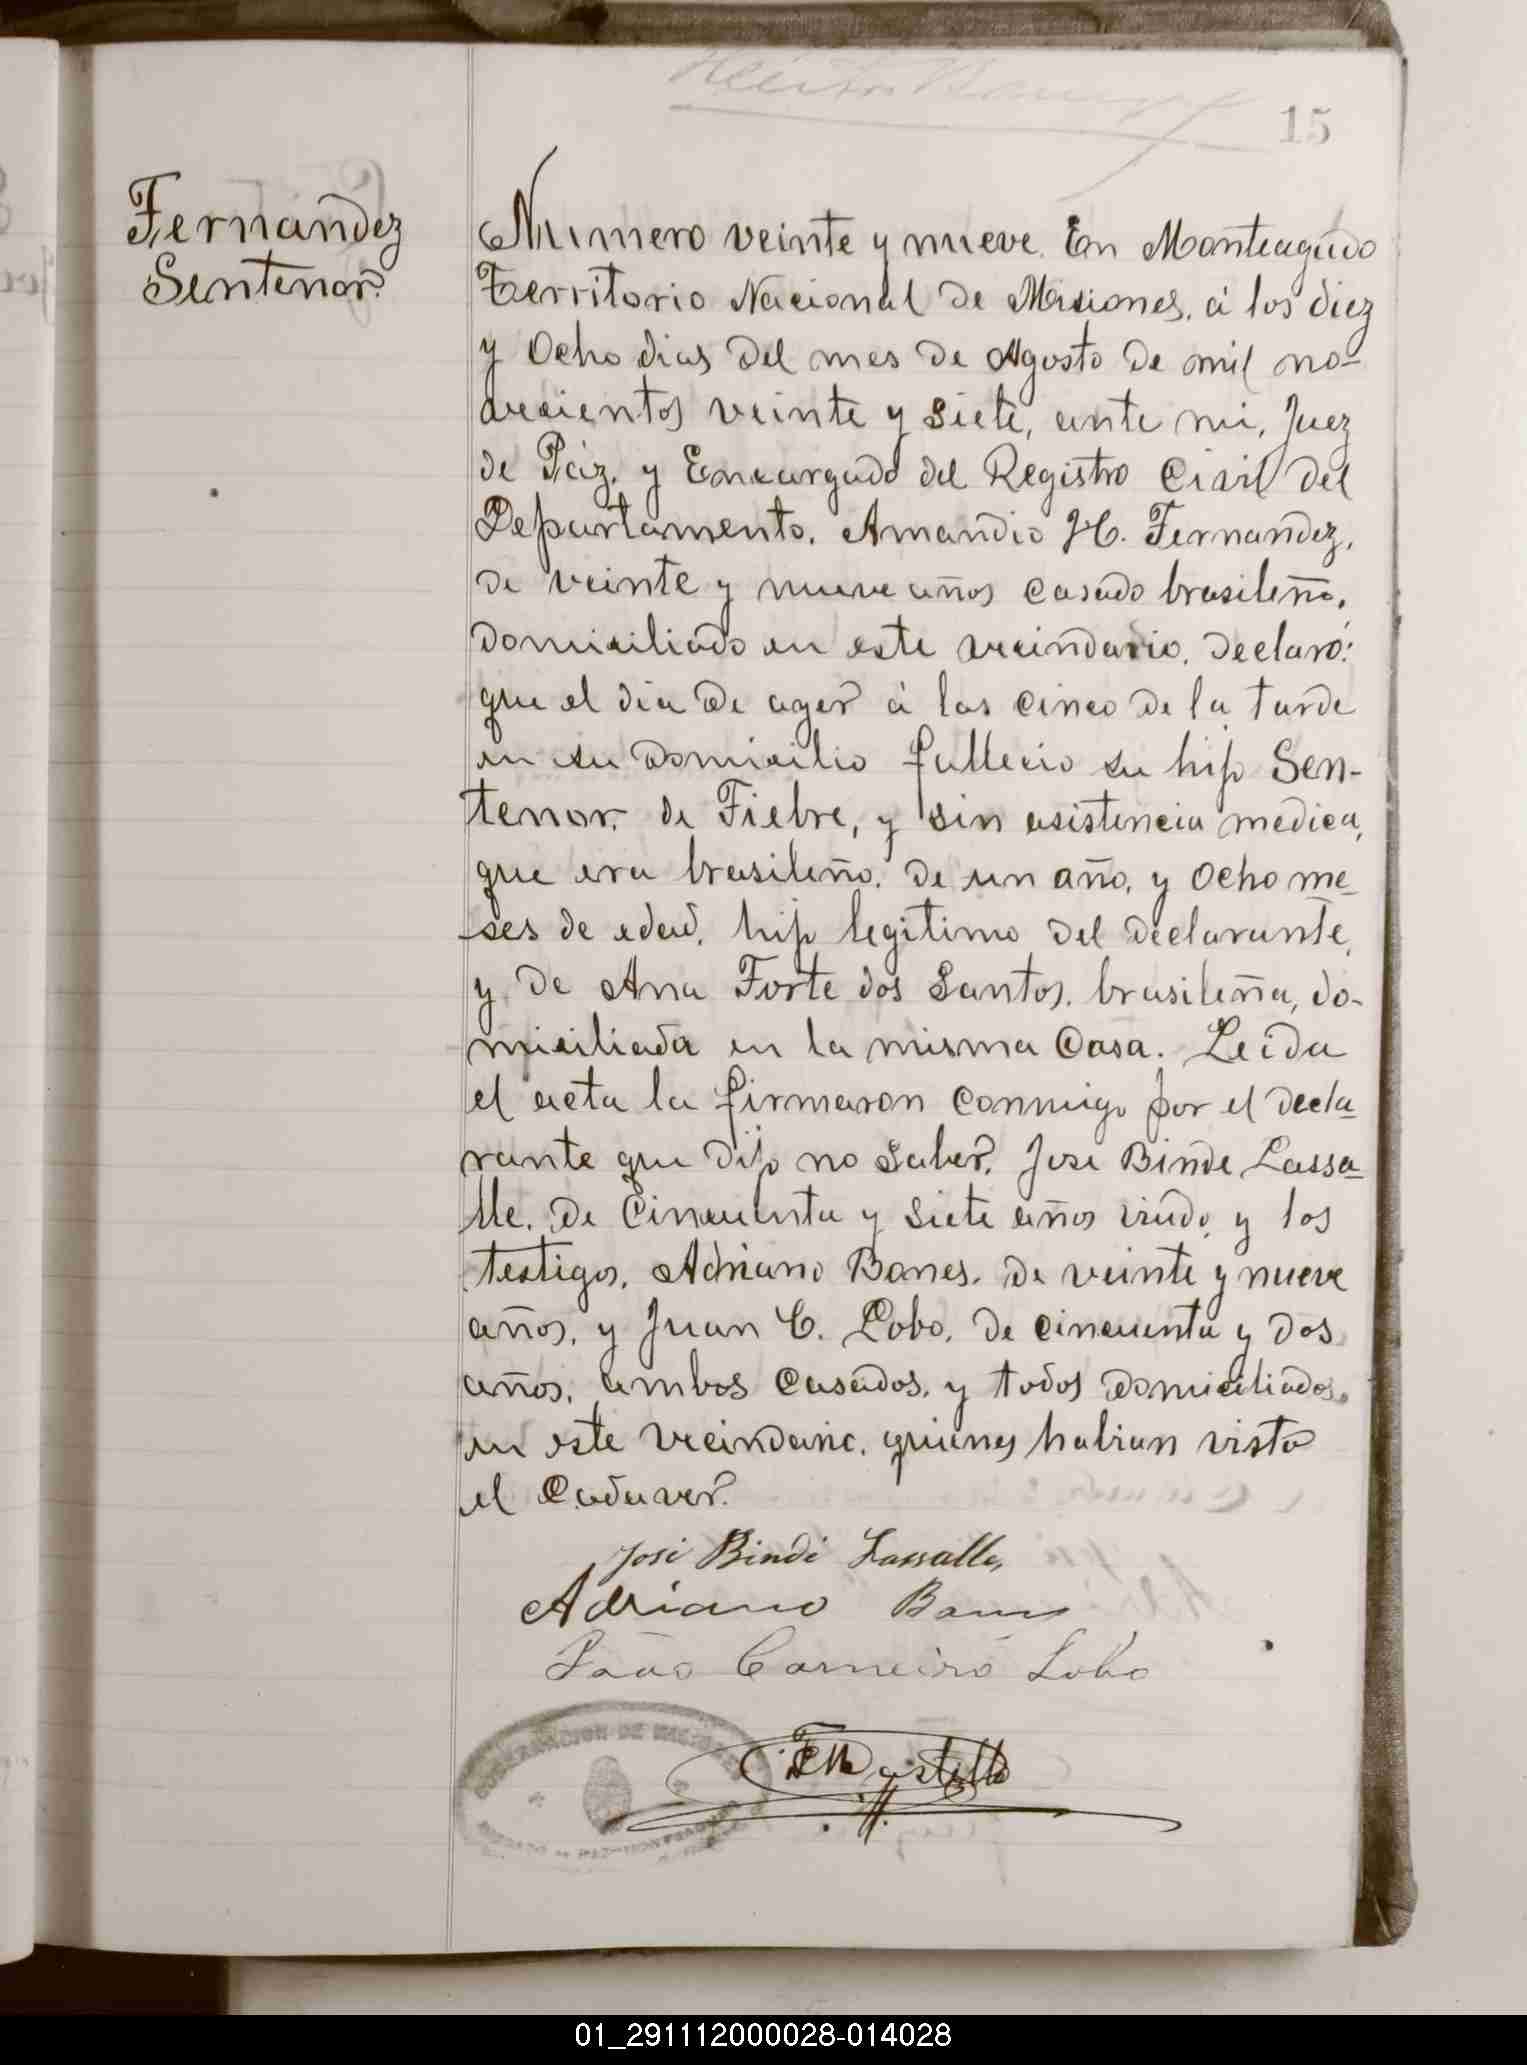 15
Fernandez
Sentenor.
Numero veinte y nueve. En Monteagudo
Territorio Nacional de Misiones, á los diez
y Ocho dias del mes de Agosto de mil no-
vecientos veinte y siete, ante mi, Juez
de Páz, y Encargado del Registro Civil del
Departamento, Amandio H. Fernandez,
de veinte y nueve años casado brasileño,
domiciliado en este vecindario, declaró:
que el dia de ayer á las cinco de la tarde
en su domicilio fallecio su hijo Sen-
tenor, de Fiebre, y sin asistencia medica,
que era brasileño, de un año, y ocho me-
ses de edad, hijo legitimo del declarante,
y de Ana Forte dos Santos, brasileña, do-
miciliada en la misma Casa. Leida
el acta la firmaron conmigo por el decla-
rante que dijo no saber, Jose Binde Lassa-
lle, de Cincuenta y siete años viudo, y los
testigos, Adriano Bones, de veinte y nueve
años, y Juan C. Lobo, de cincuenta y dos
años, ambos casados, y todos domiciliados
en este vecindario, quienes habian visto
el Cadaver.
José Bindé Lassalle,
Adriano Bones
João Carneiro Lobo
GOBERNACION DE MISIONES
01_291112000028-014028